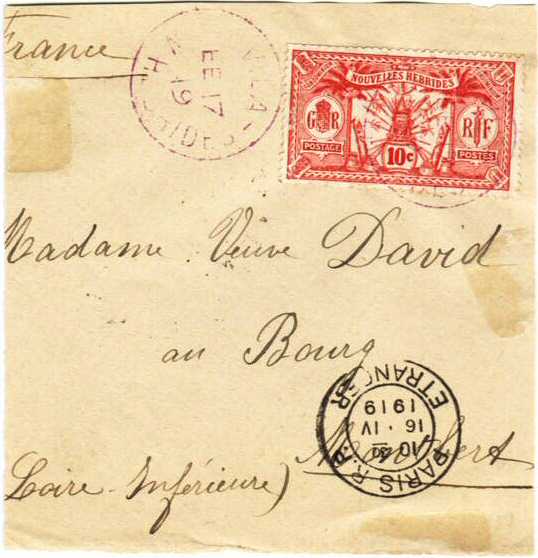 France
VILA
FE 17
19
N. HEBRIDES
NOUVELLES HEBRIDES
G R
R F
POSTAGE
10c
POSTES
Madame Veuve David
au Bourg
PARIS R.P.
ETRANGER
10
16 · IV
1919
Loire-Inférieure)